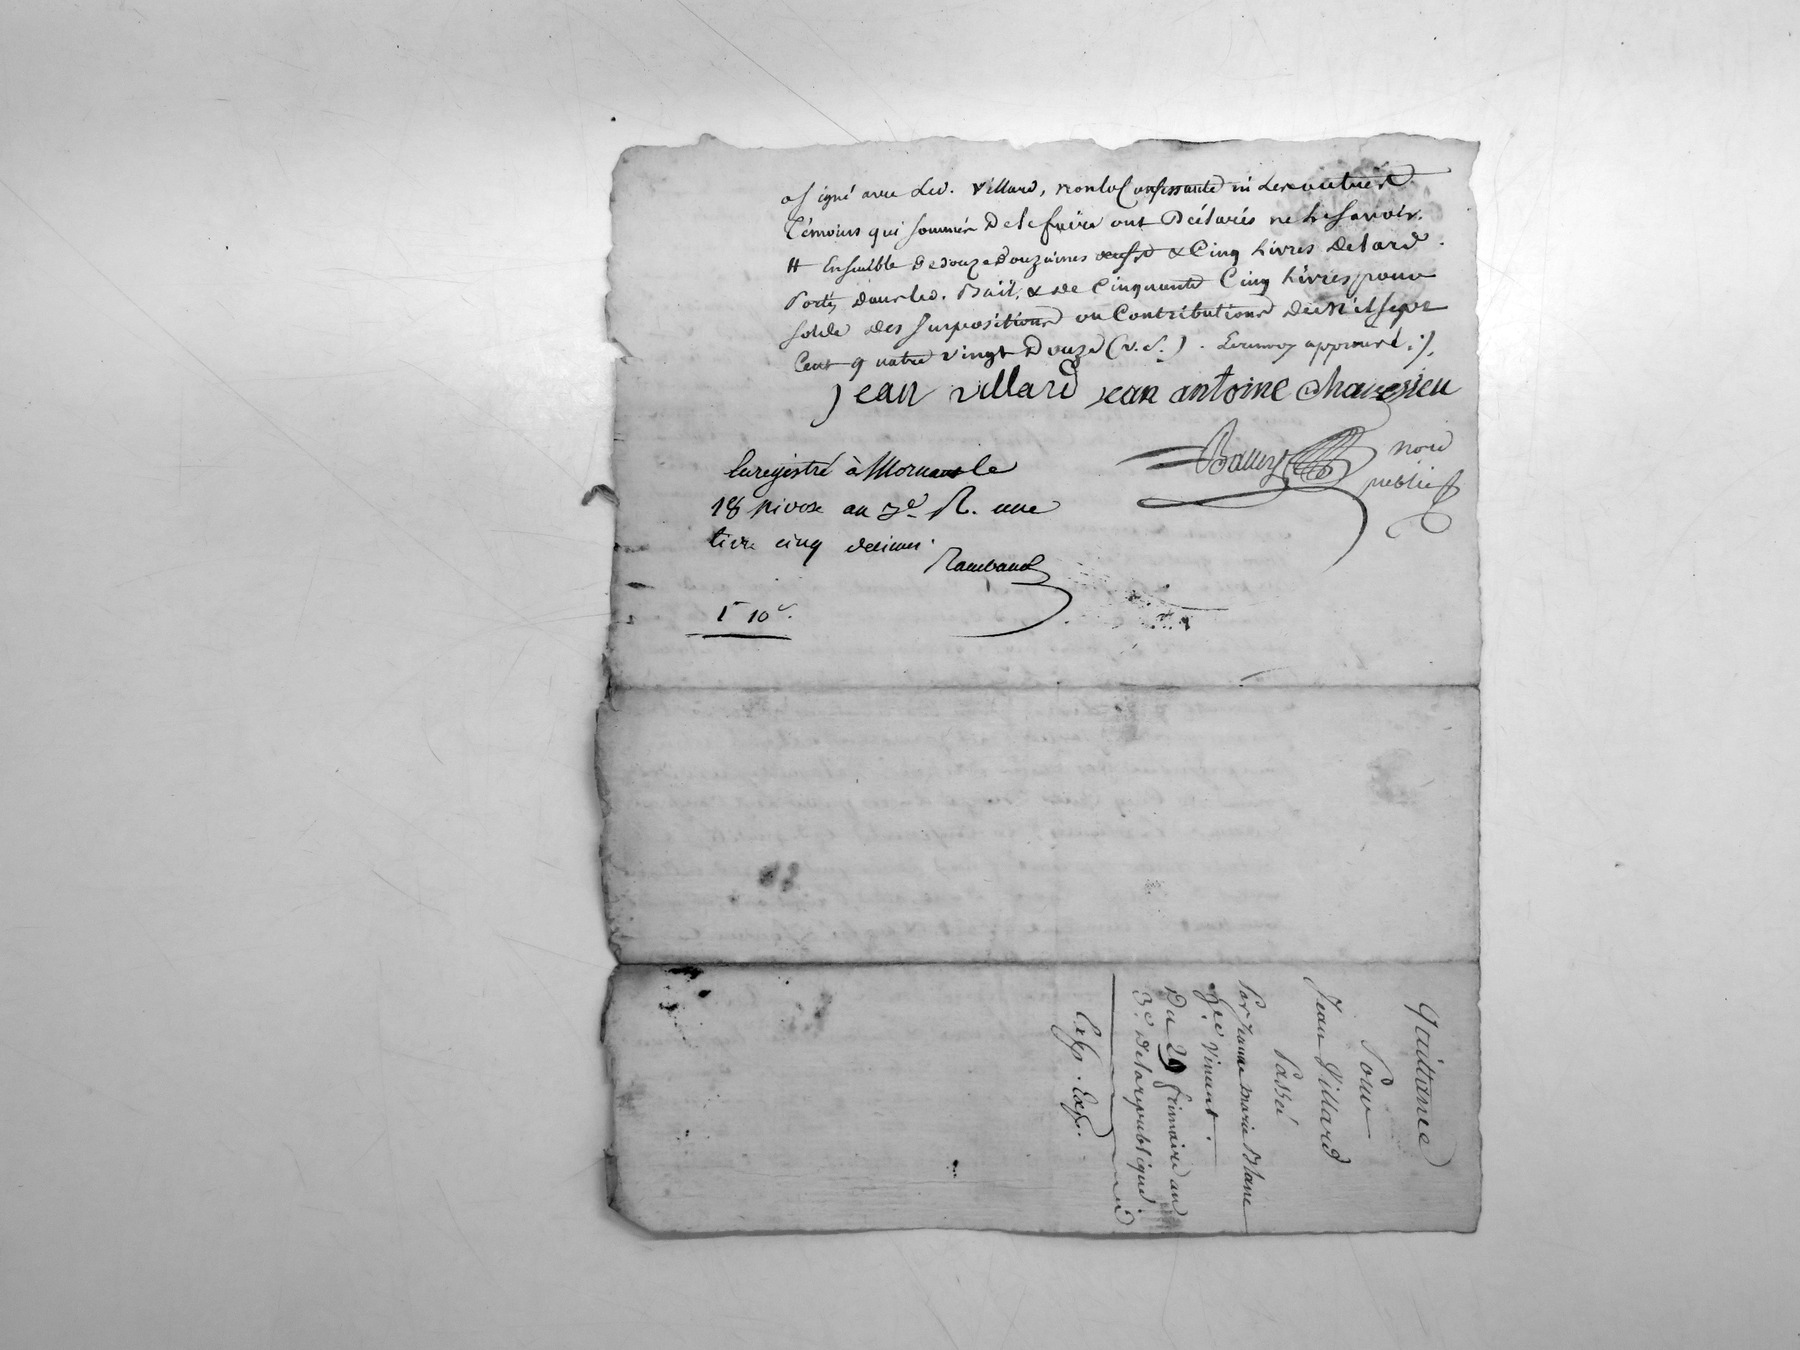 a signé avec led. Villard, non lad. confessante ni les autres
témoins qui sommés de le faire ont Déclarés ne le savoir.
# Ensemble de douze Douzaines oeufs & Cinq Livres de lard
Portés dans led. Bail, & de Cinquante Cinq Livres pour
solde des Impositions ou Contributions de Mil sept
Cent quatre vingt Douze (v. s.) . Le renvoy approuvé ./.
jean villard jean antoine
not.
public
Enregistré à Mornant le
18 Nivose an 3e R. une
livre cinq decimes.
Rambaud
1 10
Quittance
Pour
Jean Villard
Passée
Par Jeanne Marie Blanc
Vve Vincent.
Du 29 frimaire an
3e. De la republique
Exp. Exp.